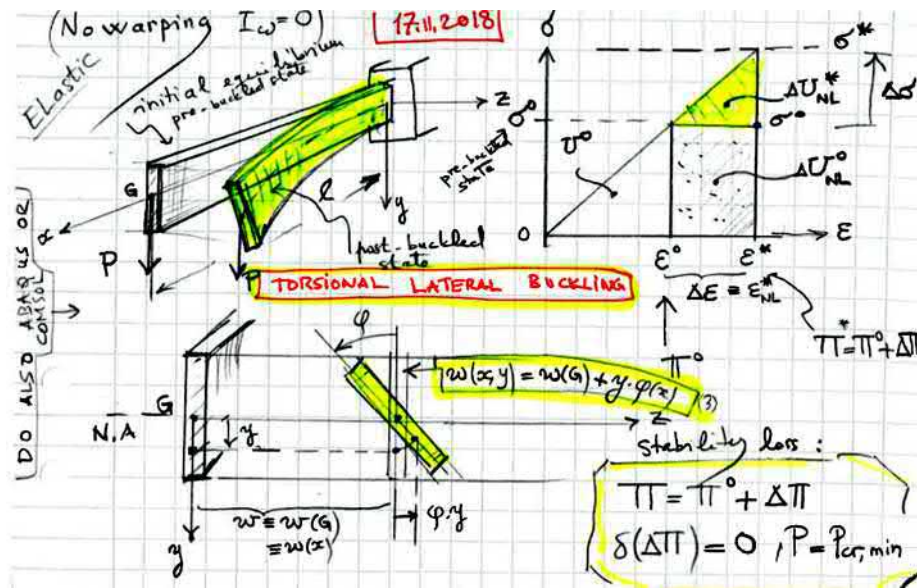 (No warping I_ω = 0)
17.11.2018
Elastic
initial equilibrium
pre-buckled state
z
G
x
P
l
y
P
post-buckled
state
TORSIONAL LATERAL BUCKLING
DO ALSO ABAQUS OR
COMSOL →
σ
σ*
ΔU*_NL
Δσ
σ°
σ°
pre-buckled
state
U°
ΔU°_NL
0
ε
ε° ε*
Δε ≡ ε*_NL
Π° Π* = Π° + ΔΠ
φ
w(x,y) = w(G) + y·φ(x) (3)
G
N.A
y
z
w ≡ w(G)
≡ w(x)
φ·y
y
stability loss:
Π = Π° + ΔΠ
δ(ΔΠ) = 0, P = Pcr, min